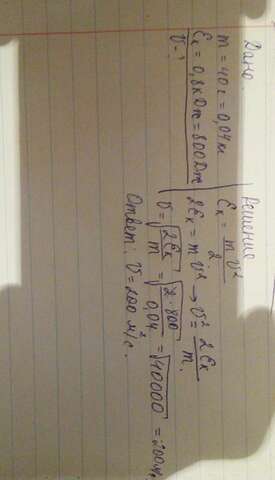 Дано:
m = 40 г = 0,04 м
Eк = 0,8 кДж = 800 Дж
V - ?
Решение
Eк = mV²/2
2Eк = mV² → V² = 2Eк/m.
V = √(2Eк/m) = √(2·800/0,04) = √40000 = 200 м/с
Ответ: V = 200 м/с.